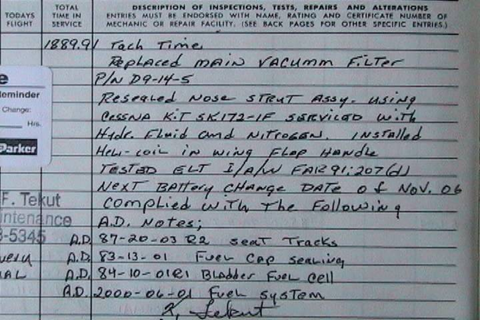 TODAYS FLIGHT
TOTAL TIME IN SERVICE
DESCRIPTION OF INSPECTIONS, TESTS, REPAIRS AND ALTERATIONS
ENTRIES MUST BE ENDORSED WITH NAME, RATING AND CERTIFICATE NUMBER OF
MECHANIC OR REPAIR FACILITY. (SEE BACK PAGES FOR OTHER SPECIFIC ENTRIES.)
1889.91 Tach Time
Replaced main vacumm Filter
P/N D9-14-5
Resealed Nose strut Assy. using
Cessna Kit SK172-1F serviced with
Hyde. Fluid and Nitrogen. Installed
Heli-coil in wing Flap Handle
TESTED ELT I/A/W FAR 91:207(d)
NEXT Battery Change DATE of Nov. 06
complied with The Following
A.D. Notes;
A.D. 87-20-03 R2 seat Tracks
A.D. 83-13-01 Fuel Cap sealing
A.D. 84-10-01R1 Bladder Fuel Cell
A.D. 2000-06-01 Fuel system
eminder
Change:
Hrs.
Parker
F. Tekut
ntenance
-5345